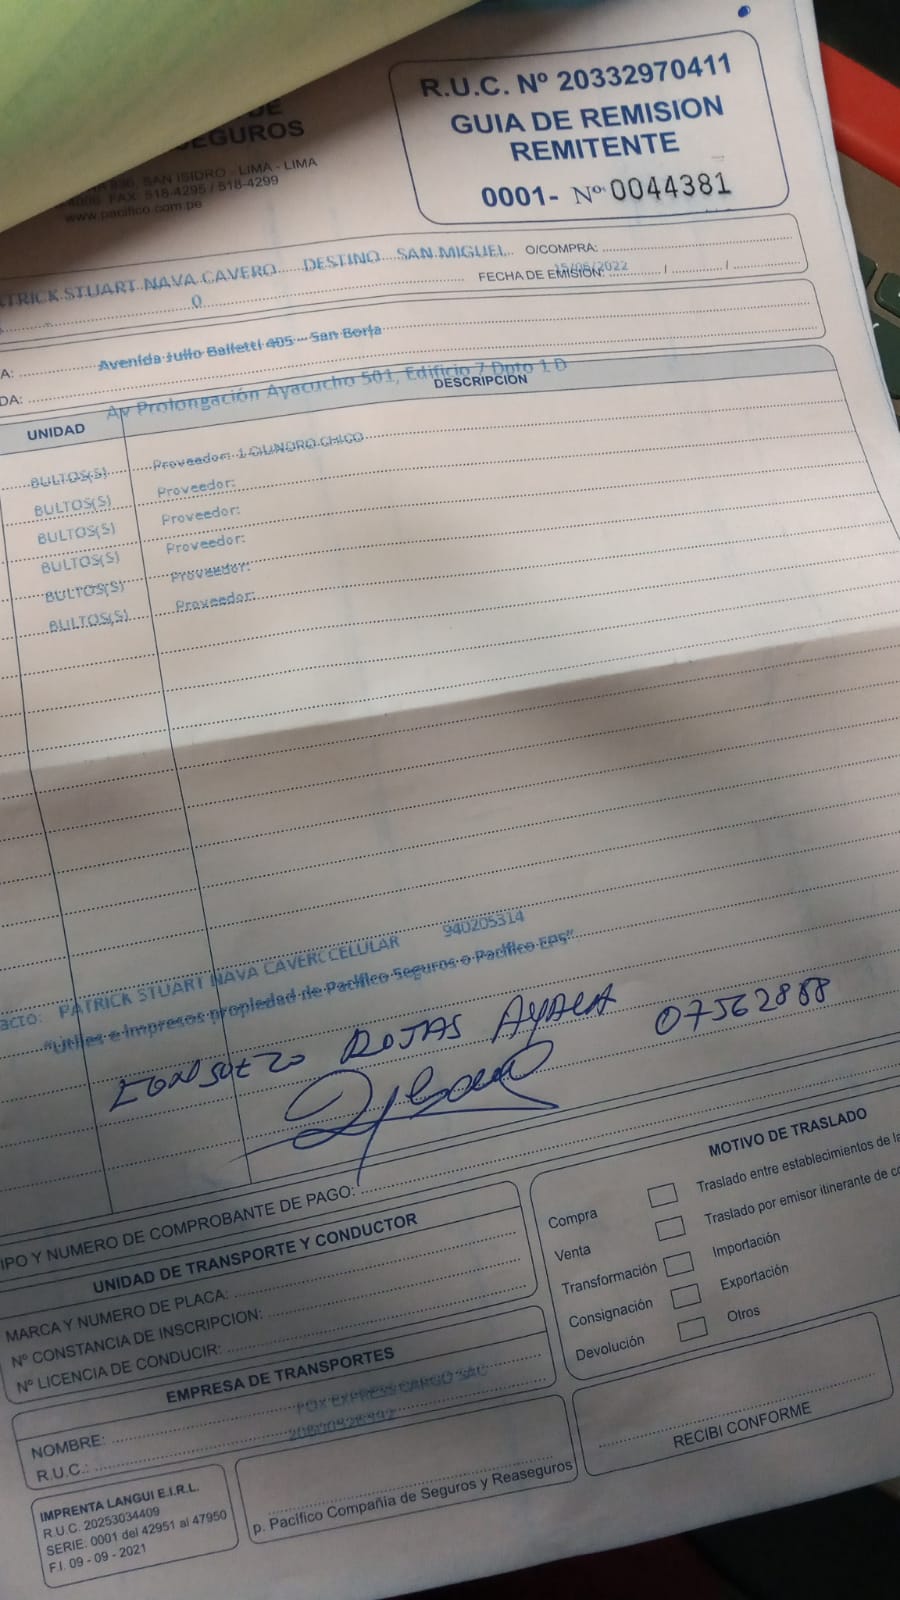 DE
SEGUROS
SAN ISIDRO - LIMA - LIMA
FAX: 518-4295 / 518-4299
www.pacifico.com.pe
R.U.C. Nº 20332970411
GUIA DE REMISION
REMITENTE
0001- Nº 0044381
ATRICK STUART NAVA CAVERO DESTINO SAN MIGUEL O/COMPRA:
0 FECHA DE EMISIÓN: 15/06/2022
A: Avenida Julio Balletti 405 - San Borja
DA:
Av Prolongación Ayacucho 501, Edificio 7 Dpto 1 D
UNIDAD DESCRIPCIÓN
BULTOS(S) Proveedor: 1 CILINDRO CHICO
BULTOS(S) Proveedor:
BULTOS(S) Proveedor:
BULTOS(S) Proveedor:
BULTOS(S) Proveedor:
BULTOS(S) Proveedor:
acto: PATRICK STUART NAVA CAVERC CELULAR 940205314
"Utiles e Impresos propiedad de Pacífico Seguros o Pacífico EPS"
CONSUELO ROJAS AYALA 07562888
IPO Y NUMERO DE COMPROBANTE DE PAGO:
UNIDAD DE TRANSPORTE Y CONDUCTOR
MARCA Y NUMERO DE PLACA:
Nº CONSTANCIA DE INSCRIPCION:
Nº LICENCIA DE CONDUCIR:
EMPRESA DE TRANSPORTES
NOMBRE: FOX EXPRESS CARGO SAC
R.U.C.:
MOTIVO DE TRASLADO
Compra Traslado entre establecimientos de la
Venta Traslado por emisor itinerante de co
Transformación Importación
Consignación Exportación
Devolución Otros
IMPRENTA LANGUI E.I.R.L.
R.U.C. 20253034409
SERIE: 0001 del 42951 al 47950
F.I. 09 - 09 - 2021
p. Pacífico Compañía de Seguros y Reaseguros
RECIBI CONFORME